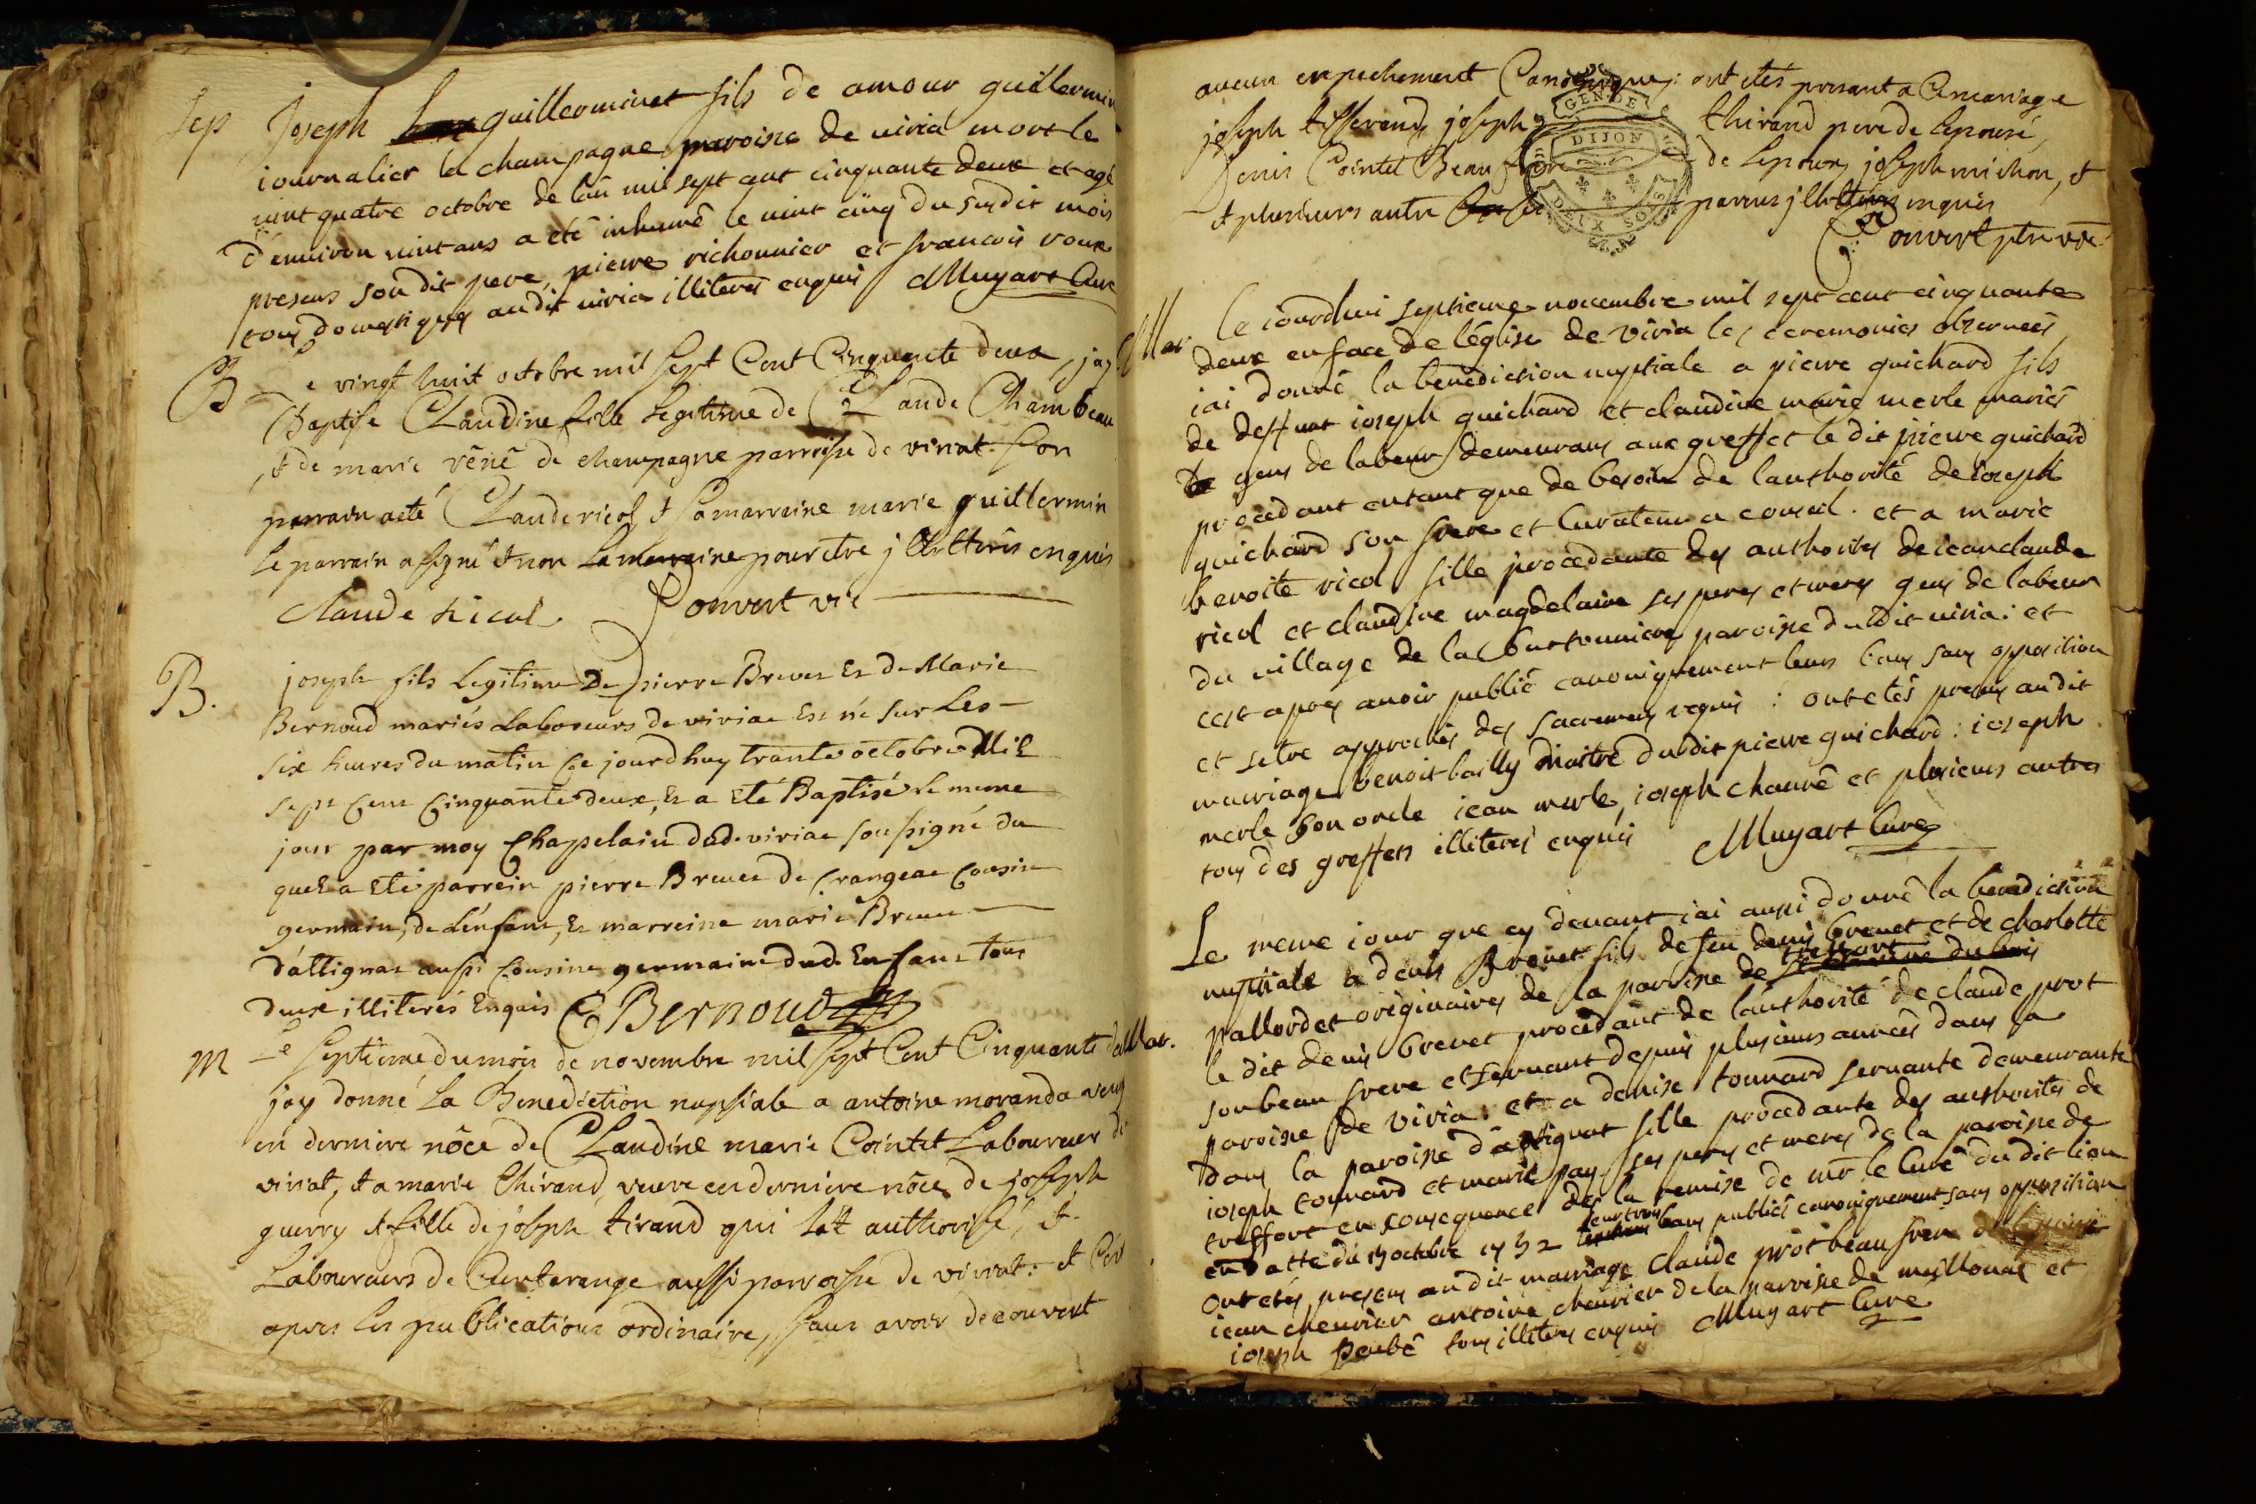 Sep Joseph guillerminet fils de amour guillermin
journalier la champagne paroisse de viria mort le
vint quatre octobre de l'an mil sept cent cinquante deux et agé
d'environ vint ans a été inhumé le vint cinq du susdit mois
presens son dit pere, pierre richonnier et francois roux
tous domestiques audit viria illiterés enquis Muyart Curé
B Le vingt huit octobre mil sept Cent Cinquante deux, jay
Baptisé Claudine fille Legitime de Claude Chambeau
& de marie réné de champagne parroisse de viriat. son
parrain a eté Claude ricol & sa marraine marie guillermin
le parrain a signé & non la marraine pour etre jllettrés enquis
Claude Ricol Convert vic
B. joseph fils Legitime De pierre Brevet Et De Marie
Bernoud mariés Laboreurs de viriac Est né sur Les
six heures du matin Ce jourdhuy trante octobre Mil
sept Cent Cinquante deux, Et a Eté Baptisé le meme
jour par moy Chapelain dud. viriac soussigné du
quel a Eté parrein pierre Brevet de Crangeac Cousin
germain, de L'énfant, Et marreine marie Brevet
d'attignat aussi Cousine germaine dud. Enfant tous
deux illiterés Enquis C Bernoud
M Le septieme du mois de novembre mil sept Cent Cinquante deux
jay donné La Benediction nuptiale a antoine moranda veuf
en derniere nôce de Claudine marie Cointet Laboureur de
viriat, & a marie thirand, veuve en derniere nôce de joseph
guerry & fille de joseph tirand qui l'at authorisé, &
Laboureurs de Curtarenge aussi parroisse de viriat: & Cet
apres les publications ordinaire, sans avoir decouvert
aucun enpechement Canonique: ont etés present a Ce mariage
joseph tisserand, joseph thirand pere de Lepousé,
Denis Cointet Beaufrere de Lepoux, joseph michon, &
& plusieurs autre parens jllettrés enquis
Convert ptre vic
GEN. DE DIJON
DEUX SOLS
Mar. Ce iourdhui septieme novembre mil sept cent cinquante
deux en face de léglise de viria les ceremonies observeés
iai donné la benediction nuptiale a pierre guichard fils
de deffunt ioseph guichard et claudine marie merle mariés
gens de labeur demeurans aux greffet le dit pierre guichard
procedant entant que de besoin de lauthorité de ioseph
guichard son frere et Curateur a conseil. et a marie
benoite ricol fille procedante des authorités de iean claude
ricol et claudine magdelaine ses peres et meres gens de labeur
du village de la Coutonniere paroisse du dit viria: et
cest apres avoir publié canoniquement leurs bans sans opposition
et setre approchés des sacremens requis: ont etés presens audit
mariage benoit bailly maitre dudit pierre guichard: ioseph
merle son oncle iean merle, ioseph chanvé et plusieurs autres
tous des greffets illiterés enquis Muyart Curé
Mar. Le meme iour que cy devant iai aussi donné la benediction
nuptiale a denis Brevet fils de feu denis brevet et de charlotte
pallordet originaires de la paroisse de treffort
le dit denis brevet procedant de lauthorité de claude prot
son beau frere et servant depuis plusieurs années dans la
paroisse de viria: et a denise tonnard servante demeurante
dans la paroisse d'attignat fille procedante des authorités de
ioseph tonnard et marie pay ses peres et meres de la paroisse de
treffort en consequence de la remise de mr le Curé du dit lieu
en datte du 13 octobre 1752 leurs trois bans publiés canoniquement sans opposition
ont etés presens audit mariage Claude prot beau frere
iean chevrier antoine chevrier de la paroisse de meillonat et
ioseph tous illiterés enquis Muyart Curé